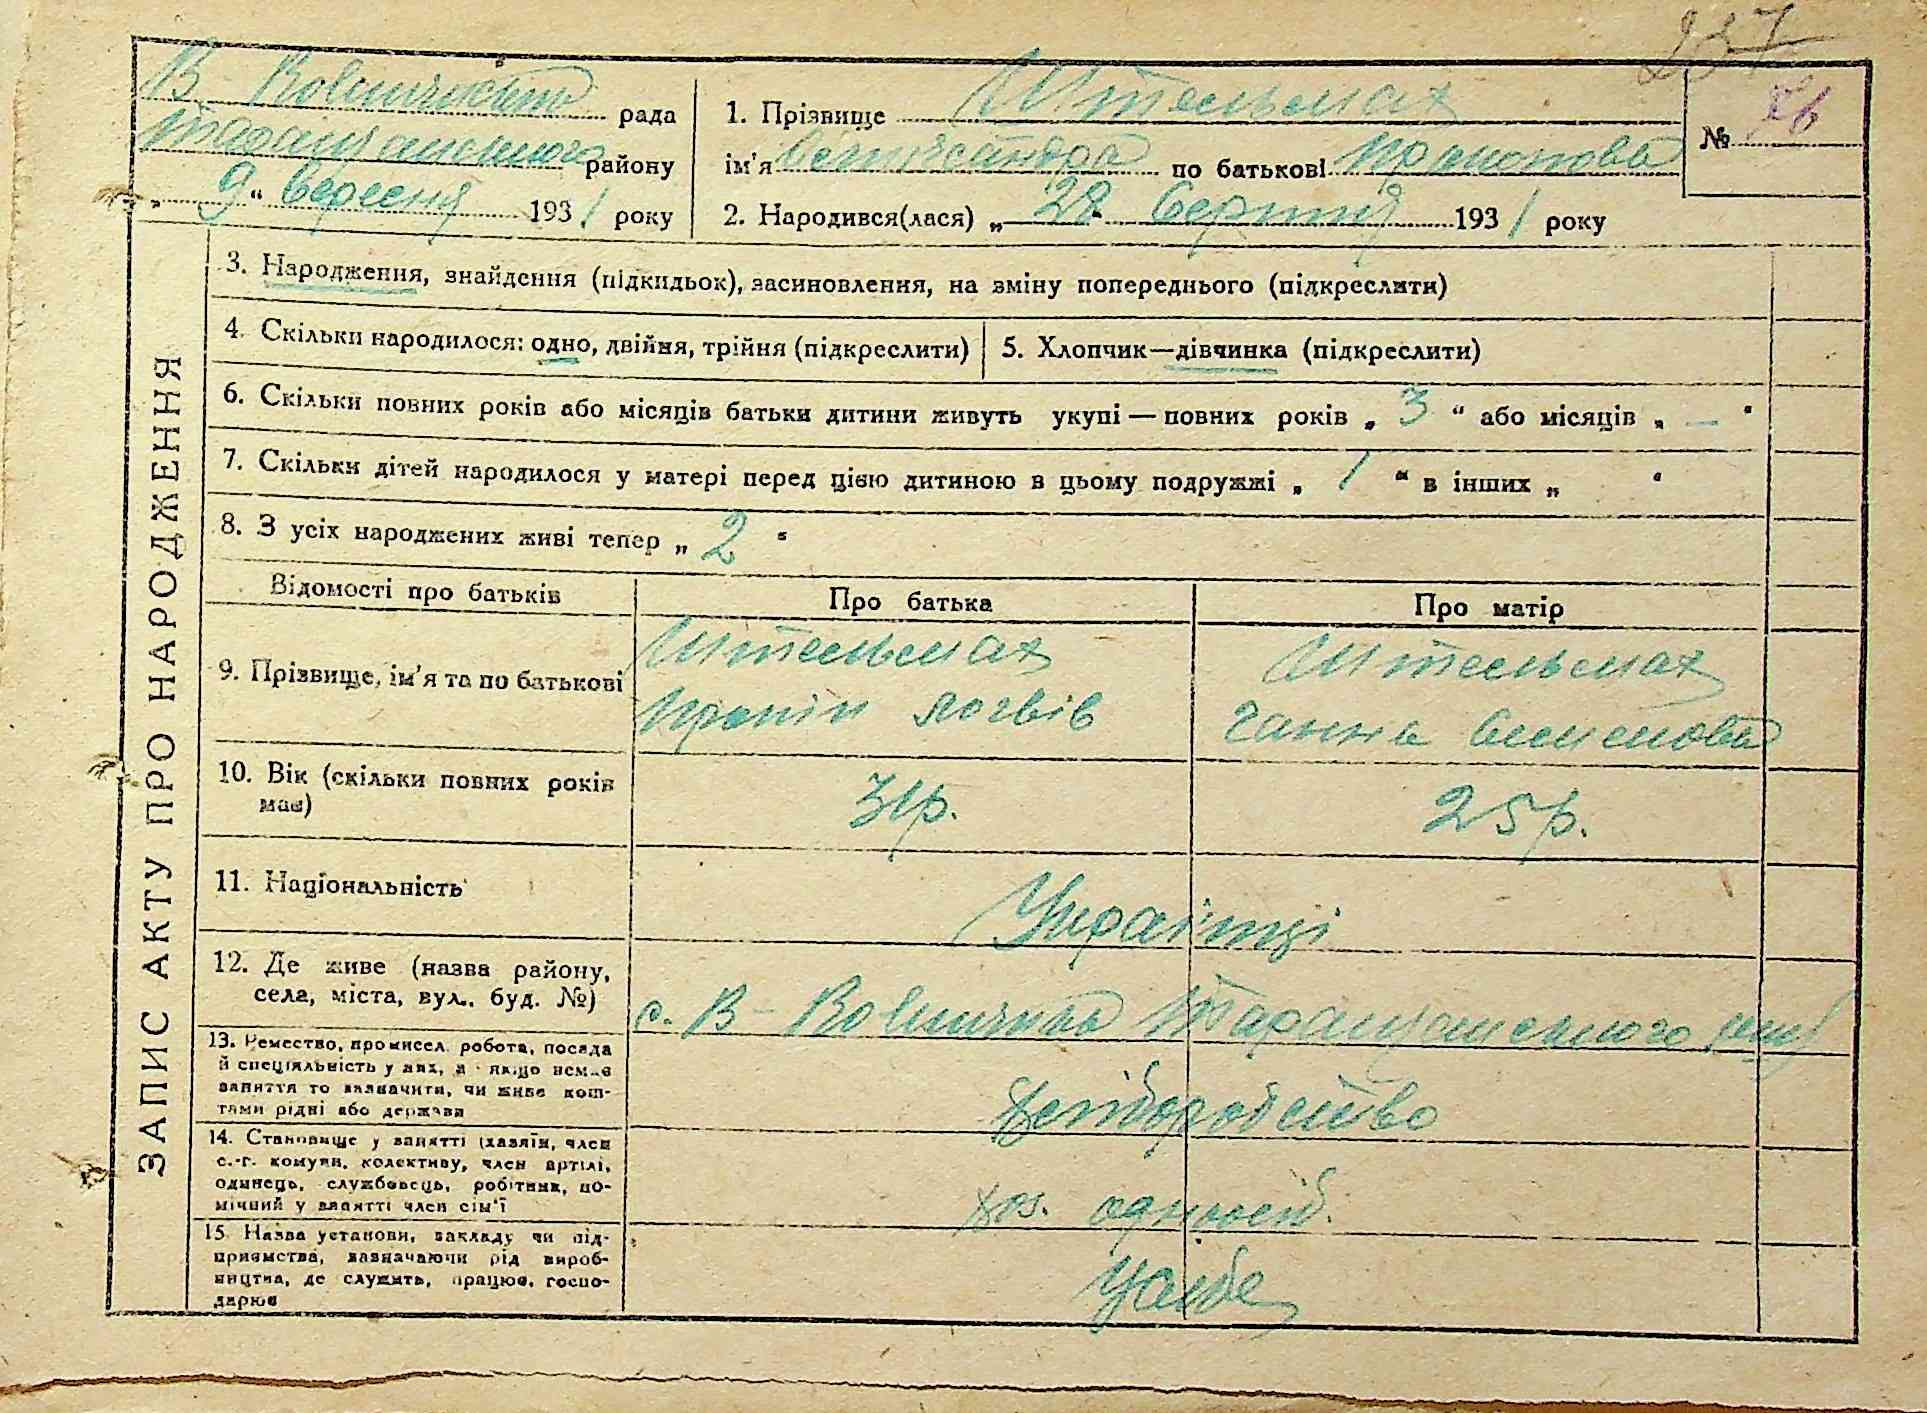 237
В Вовнянська рада
Таращанського району
„ 9 “ вересня 1931 року
1. Прізвище Штельмах
ім'я Олександра по батькові Прокопова
№
2. Народився(лася) „ 28 Серпня 1931 року
ЗАПИС АКТУ ПРО НАРОДЖЕННЯ
3. Народження, знайдення (підкидьок), засиновлення, на зміну попереднього (підкреслити)
4. Скільки народилося: одно, двійня, трійня (підкреслити)
5. Хлопчик—дівчинка (підкреслити)
6. Скільки повних років або місяців батьки дитини живуть укупі — повних років „ 3 “ або місяців „ — “
7. Скільки дітей народилося у матері перед цією дитиною в цьому подружжі „ 1 “ в інших „ “
8. З усіх народжених живі тепер „ 2 “
Відомості про батьків
Про батька
Про матір
9. Прізвище, ім'я та по батькові
Штельмах
Прокіп Логвів
Штельмах
Ганна
10. Вік (скільки повних років має)
31р.
25р.
11. Національність
Українці
12. Де живе (назва району,
села, міста, вул., буд. №)
с. В- Таращанського
13. Ремество, промисел, робота, посада
й спеціяльність у них, а якщо немає
заняття то зазначити, чи живе кош-
тами рідні або держави
хліборобство
14. Становище у занятті (хазяїн, член
с.-г. комуни, колективу, член артілі,
одинець, службовець, робітник, по-
мічний у занятті член сім'ї
хаз. одноосіб.
15. Назва установи, закладу чи під-
приємства, зазначаючи рід вироб-
ництва, де служить, працює, госпо-
дарює
У себе